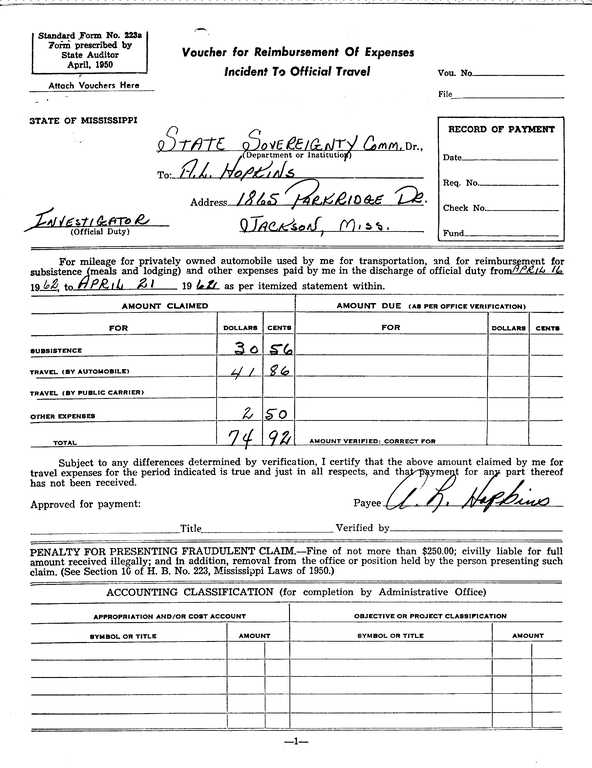 Standard Form No. 223a
Form prescribed by
State Auditor
April, 1950
Attach Vouchers Here
Voucher for Reimbursement Of Expenses
Incident To Official Travel
Vou. No.
File
STATE OF MISSISSIPPI
RECORD OF PAYMENT
Date
Req. No.
Check No.
Fund
STATE SOVEREIGNTY COMM. Dr.,
(Department or Institution)
To: A.L. HOPKINS
Address 1865 PARKRIDGE DR.
JACKSON, MISS.
INVESTIGATOR
(Official Duty)
For mileage for privately owned automobile used by me for transportation, and for reimbursement for
subsistence (meals and lodging) and other expenses paid by me in the discharge of official duty from APRIL 16
1962, to APRIL 21 1962 as per itemized statement within.
AMOUNT CLAIMED AMOUNT DUE (AS PER OFFICE VERIFICATION)
FOR DOLLARS CENTS FOR DOLLARS CENTS
SUBSISTENCE 30 56
TRAVEL (BY AUTOMOBILE) 41 86
TRAVEL (BY PUBLIC CARRIER)
OTHER EXPENSES 2 50
TOTAL 74 92 AMOUNT VERIFIED: CORRECT FOR
Subject to any differences determined by verification, I certify that the above amount claimed by me for
travel expenses for the period indicated is true and just in all respects, and that payment for any part thereof
has not been received.
Approved for payment: Payee A. L. Hopkins
Title Verified by
PENALTY FOR PRESENTING FRAUDULENT CLAIM.—Fine of not more than $250.00; civilly liable for full
amount received illegally; and in addition, removal from the office or position held by the person presenting such
claim. (See Section 16 of H. B. No. 223, Mississippi Laws of 1950.)
ACCOUNTING CLASSIFICATION (for completion by Administrative Office)
APPROPRIATION AND/OR COST ACCOUNT OBJECTIVE OR PROJECT CLASSIFICATION
SYMBOL OR TITLE AMOUNT SYMBOL OR TITLE AMOUNT
—1—